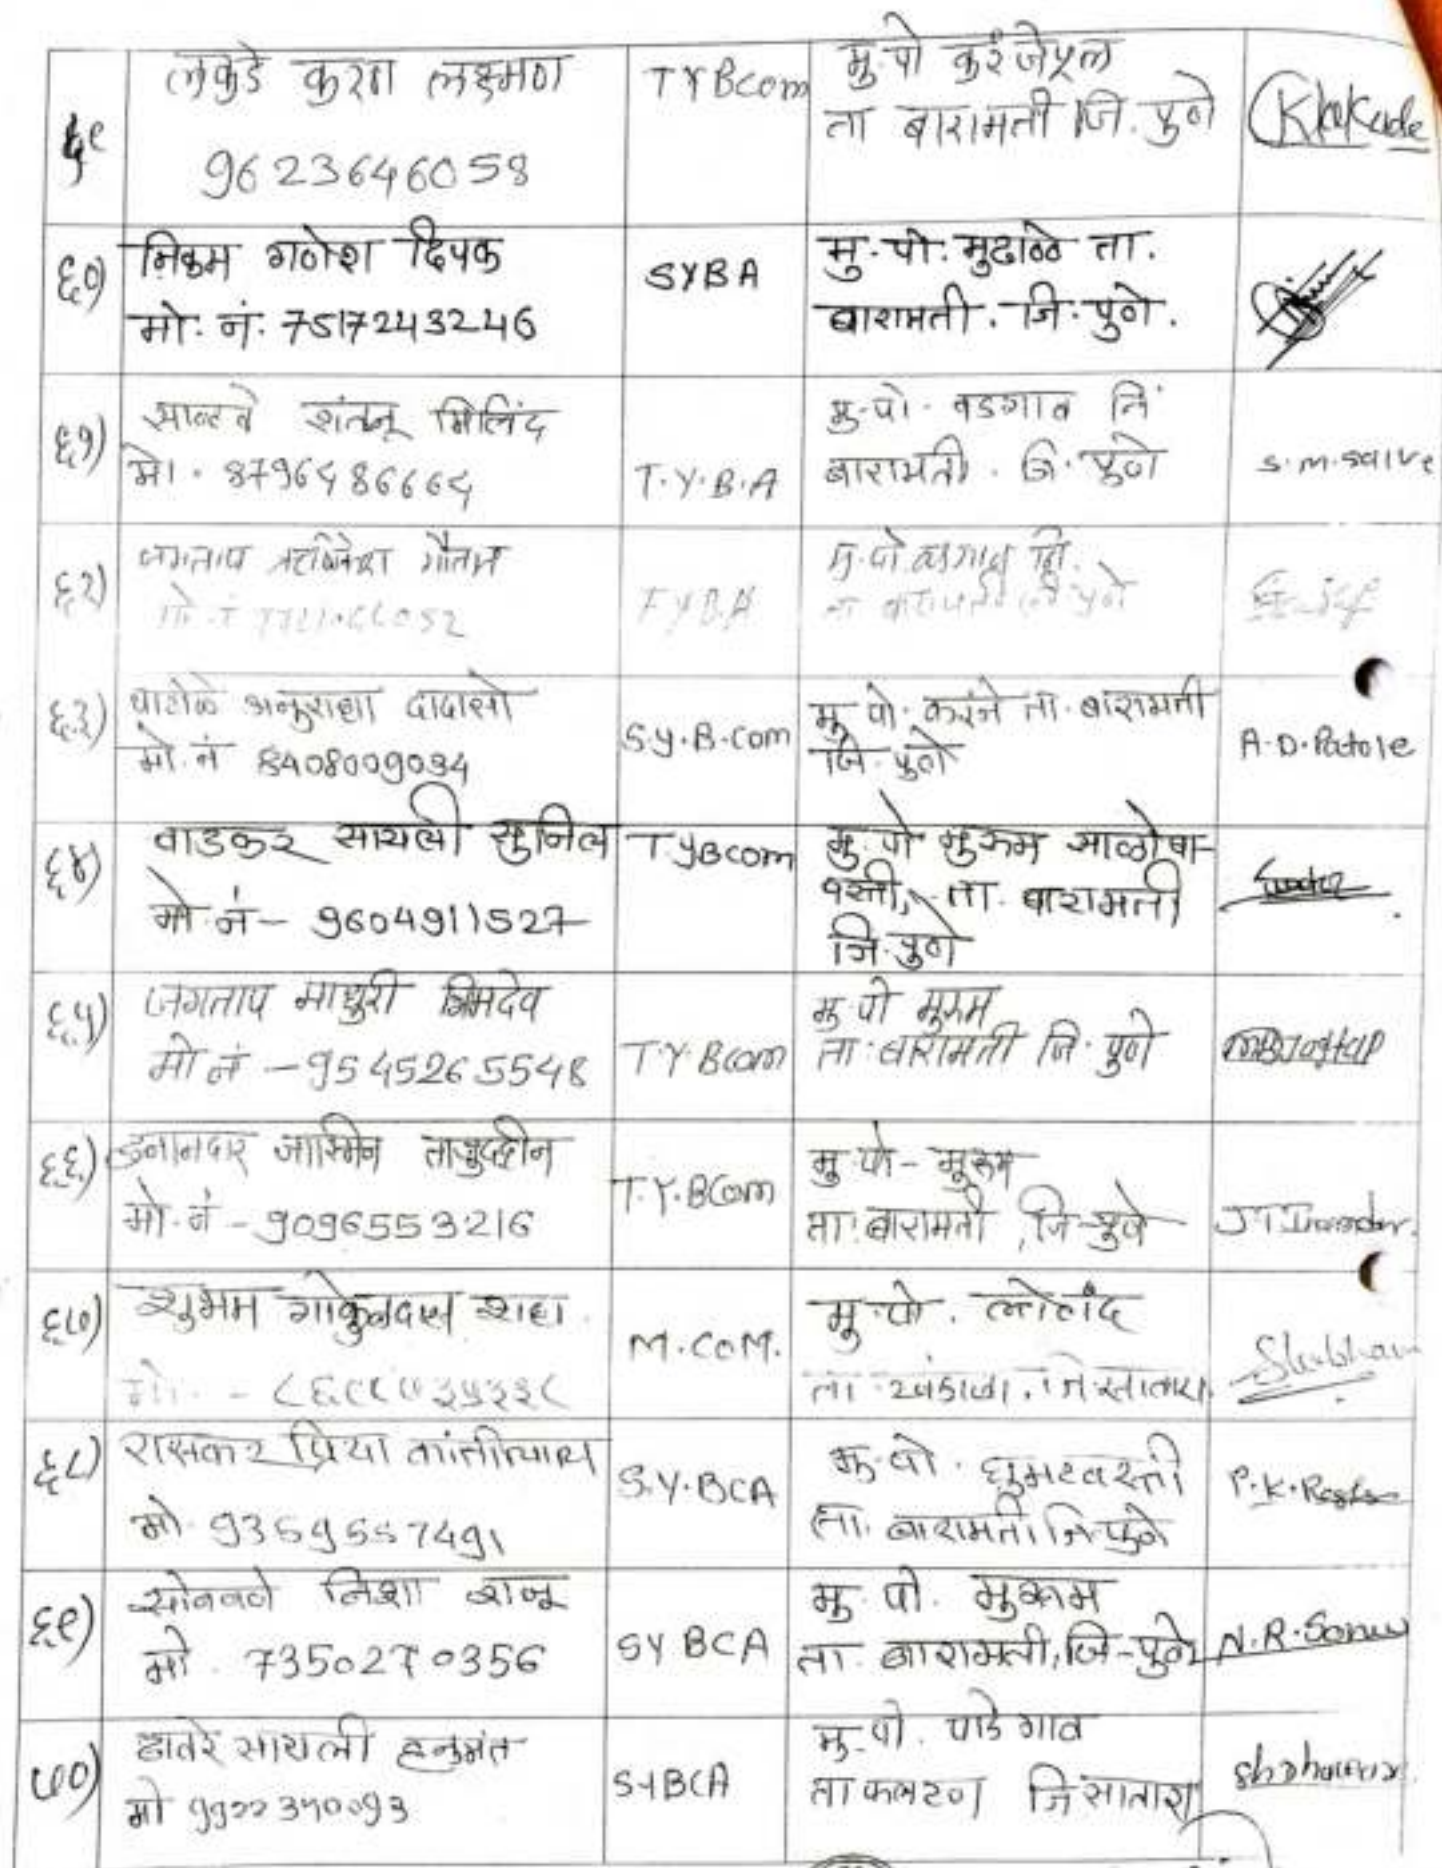 ५९
लकडे कुरण लक्ष्मण
9623646058
TYBcom
मु.पो करंजेपूल
ता बारामती जि. पुणे
६०)
निकम गणेश दिपक
मो. नं. 7517243246
SYBA
मु.पो. मुढाळे ता.
बारामती. जि. पुणे.
६१)
साळवे शंतनू मिलिंद
मो. 8796486664
T.Y.B.A
मु.पो. वडगाव नि
बारामती. जि. पुणे
S.M.Salve
६२)
जगताप गौतम
FYBA
मु.पो. वडगाव नि.
ता बारामती जि पुणे
६३)
पाटोळे अनुराधा दादासो
मो. नं 8408009034
S.Y.B.com
मु.पो. करंजे ता. बारामती
जि. पुणे
A.D.Patole
६४)
वाडकर सायली सुनिल
मो. नं - 9604911527
TYBcom
मु.पो मुरूम साळोबा-
वस्ती, ता. बारामती
जि. पुणे
६५)
जगताप माधुरी भिमदेव
मो नं - 9545265548
T.Y.Bcom
मु.पो मुरुम
ता. बारामती जि. पुणे
६६)
इनामदार जास्मिन ताजुद्दीन
मो. नं - 9096553216
T.Y.BCom
मु.पो - मुरूम
ता. बारामती, जि-पुणे
JT Inamdar.
६७)
शुभम गोकुळदास शहा.
मो. -
M.COM.
मु.पो. लोणंद
ता - खंडाळा. जि सातारा.
Shubham
६८)
रासकर प्रिया कांतीलाल
मो. 9359557491
S.Y.BCA
मु.पो. घुमटवस्ती
ता. बारामती जि-पुणे
P.K.Raskar
६९)
सोनवणे निशा राजू
मो. 7350270356
SY BCA
मु.पो. मुरूम
ता. बारामती, जि-पुणे
N.R.Sonw
७०)
सायली हनुमंत
मो 9922340093
SYBCA
मु.पो. पाडेगाव
ता फलटण जि सातारा